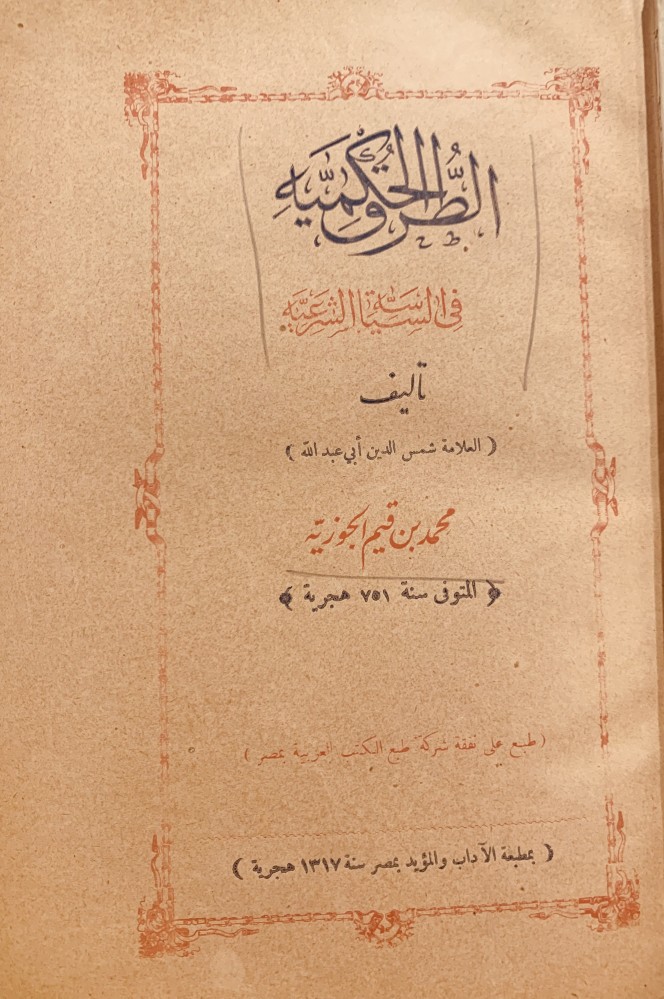 الطرق الحكمية
في السياسة الشرعية
تأليف
(العلامة شمس الدين أبي عبد الله)
محمد بن قيم الجوزية
﴿ المتوفى سنة ٧٥١ هجرية ﴾
(طبع على نفقة شركة طبع الكتب العربية بمصر)
(بمطبعة الآداب والمؤيد بمصر سنة ١٣١٧ هجرية)